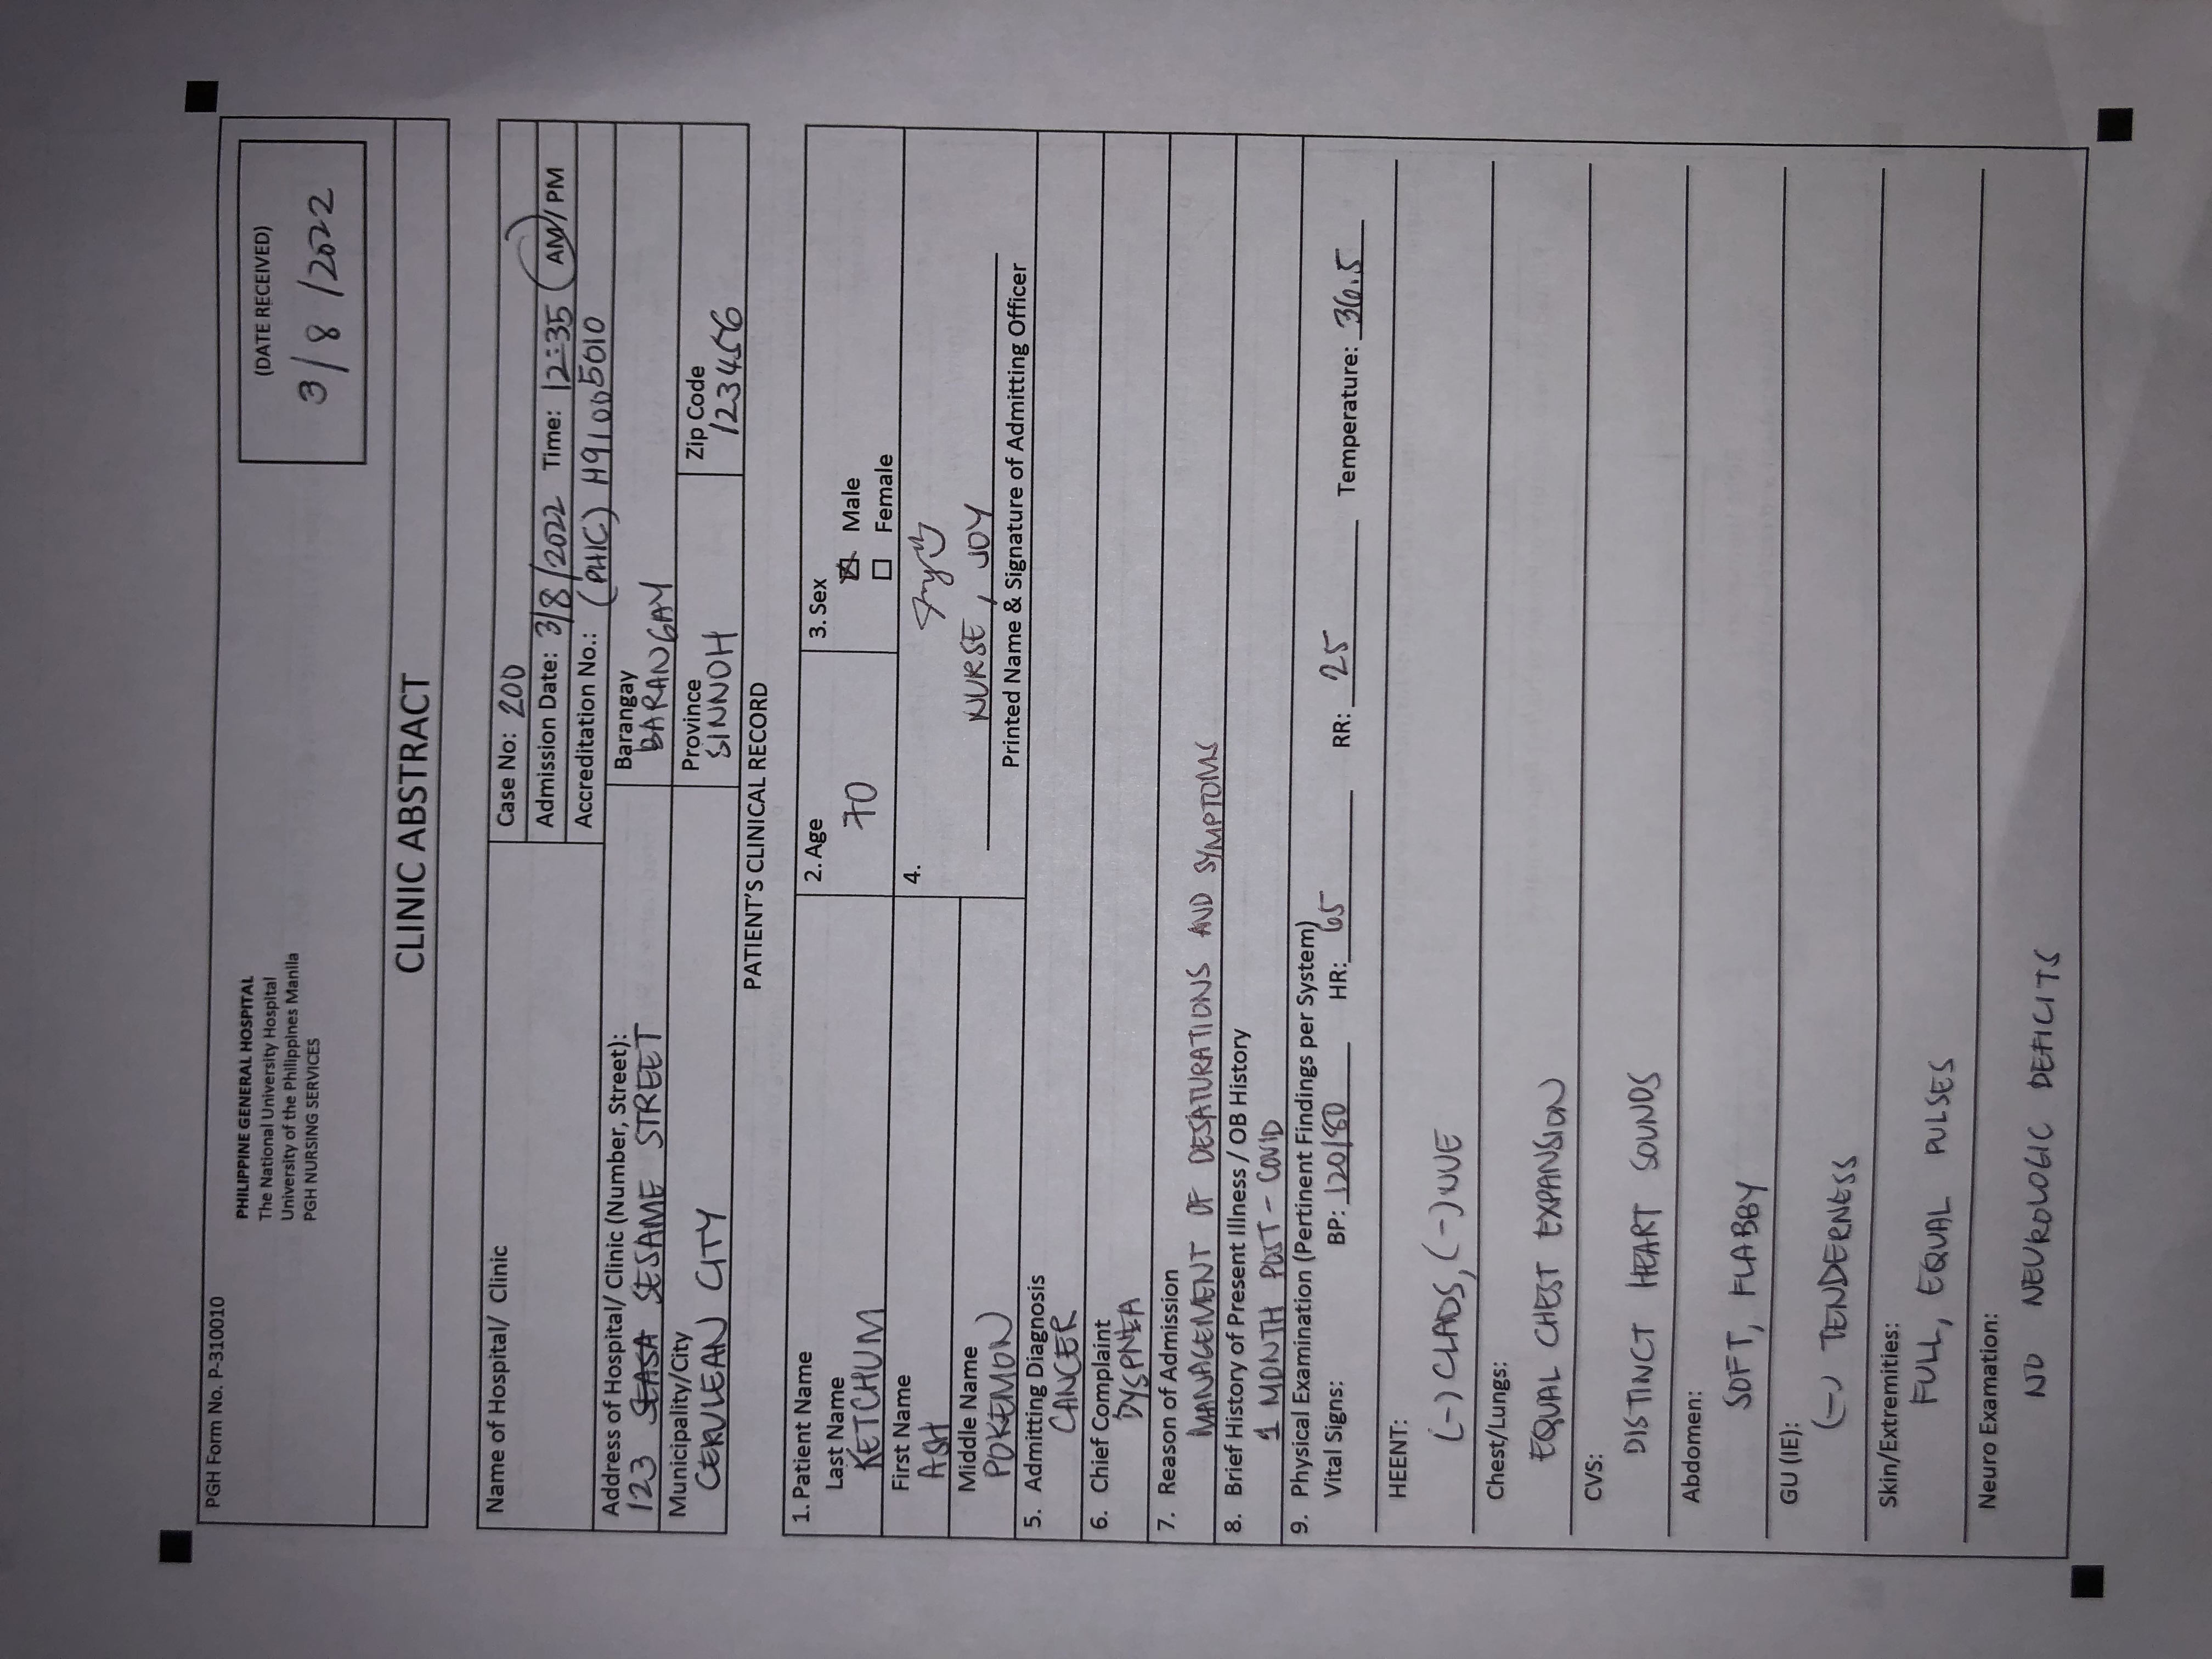 PGH Form No. P-310010
PHILIPPINE GENERAL HOSPITAL
The National University Hospital
University of the Philippines Manila
PGH NURSING SERVICES
(DATE RECEIVED)
3/8/2022
CLINIC ABSTRACT
Name of Hospital/ Clinic
Case No: 200
Admission Date: 3/8/2022 Time: 12:35 AM / PM
Accreditation No.: (PHIC) H91005010
Address of Hospital/ Clinic (Number, Street):
123 SEASA SESAME STREET
Barangay
BARANGAY
Municipality/City
CERULEAN CITY
Province
SINNOH
Zip Code
123456
PATIENT'S CLINICAL RECORD
1. Patient Name
Last Name
KETCHUM
2. Age
70
3. Sex
Male
Female
First Name
ASH
Middle Name
POKEMON
4.
NURSE, JOY
Printed Name & Signature of Admitting Officer
5. Admitting Diagnosis
CANCER
6. Chief Complaint
DYSPNEA
7. Reason of Admission
MANAGEMENT OF DESATURATIONS AND SYMPTOMS
8. Brief History of Present Illness / OB History
1 MONTH POST-COVID
9. Physical Examination (Pertinent Findings per System)
Vital Signs: BP: 120/80 HR: 65 RR: 25 Temperature: 36.5
HEENT:
(-) CLADS, (-) NVE
Chest/Lungs:
EQUAL CHEST EXPANSION
CVS:
DISTINCT HEART SOUNDS
Abdomen:
SOFT, FLABBY
GU (IE):
(-) TENDERNESS
Skin/Extremities:
FULL, EQUAL PULSES
Neuro Examation:
NO NEUROLOGIC DEFICITS